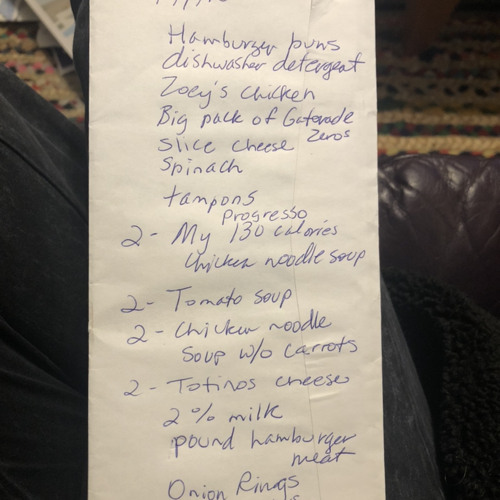 Hamburger buns
dishwasher detergent
Zoey's chicken
Big pack of Gatorade
Zeros
slice cheese
spinach
tampons
Progresso
2- My 130 calories
chicken noodle soup
2- Tomato soup
2- Chicken noodle
soup w/o carrots
2- Totinos cheese
2% milk
pound hamburger
meat
Onion Rings